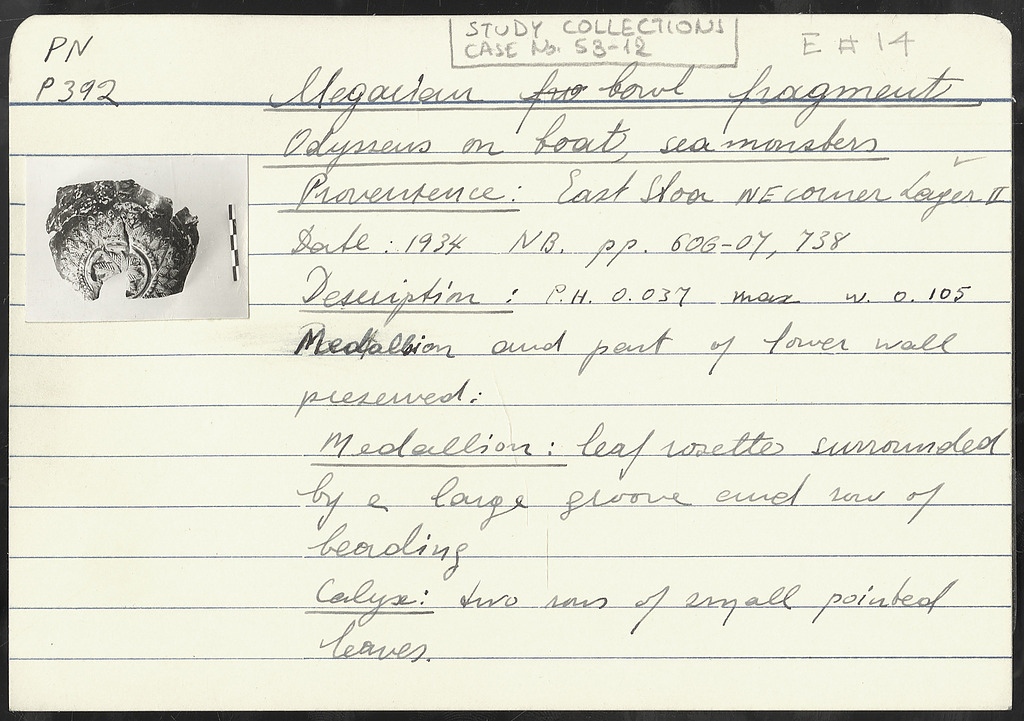 PN
P 392
STUDY COLLECTIONS
CASE No. 53-12
E # 14
Megarian fro bowl fragment
Odysseus on boat, sea monsters
Proventence: East Stoa NE corner Layer II
Date: 1934 NB. pp. 606-07, 738
Description: P.H. 0.037 max w. 0.105
Medallion and part of lower wall
preserved:
Medallion: leaf rosette surrounded
by a large groove and row of
beading
Calyx: two rows of small pointed
leaves.